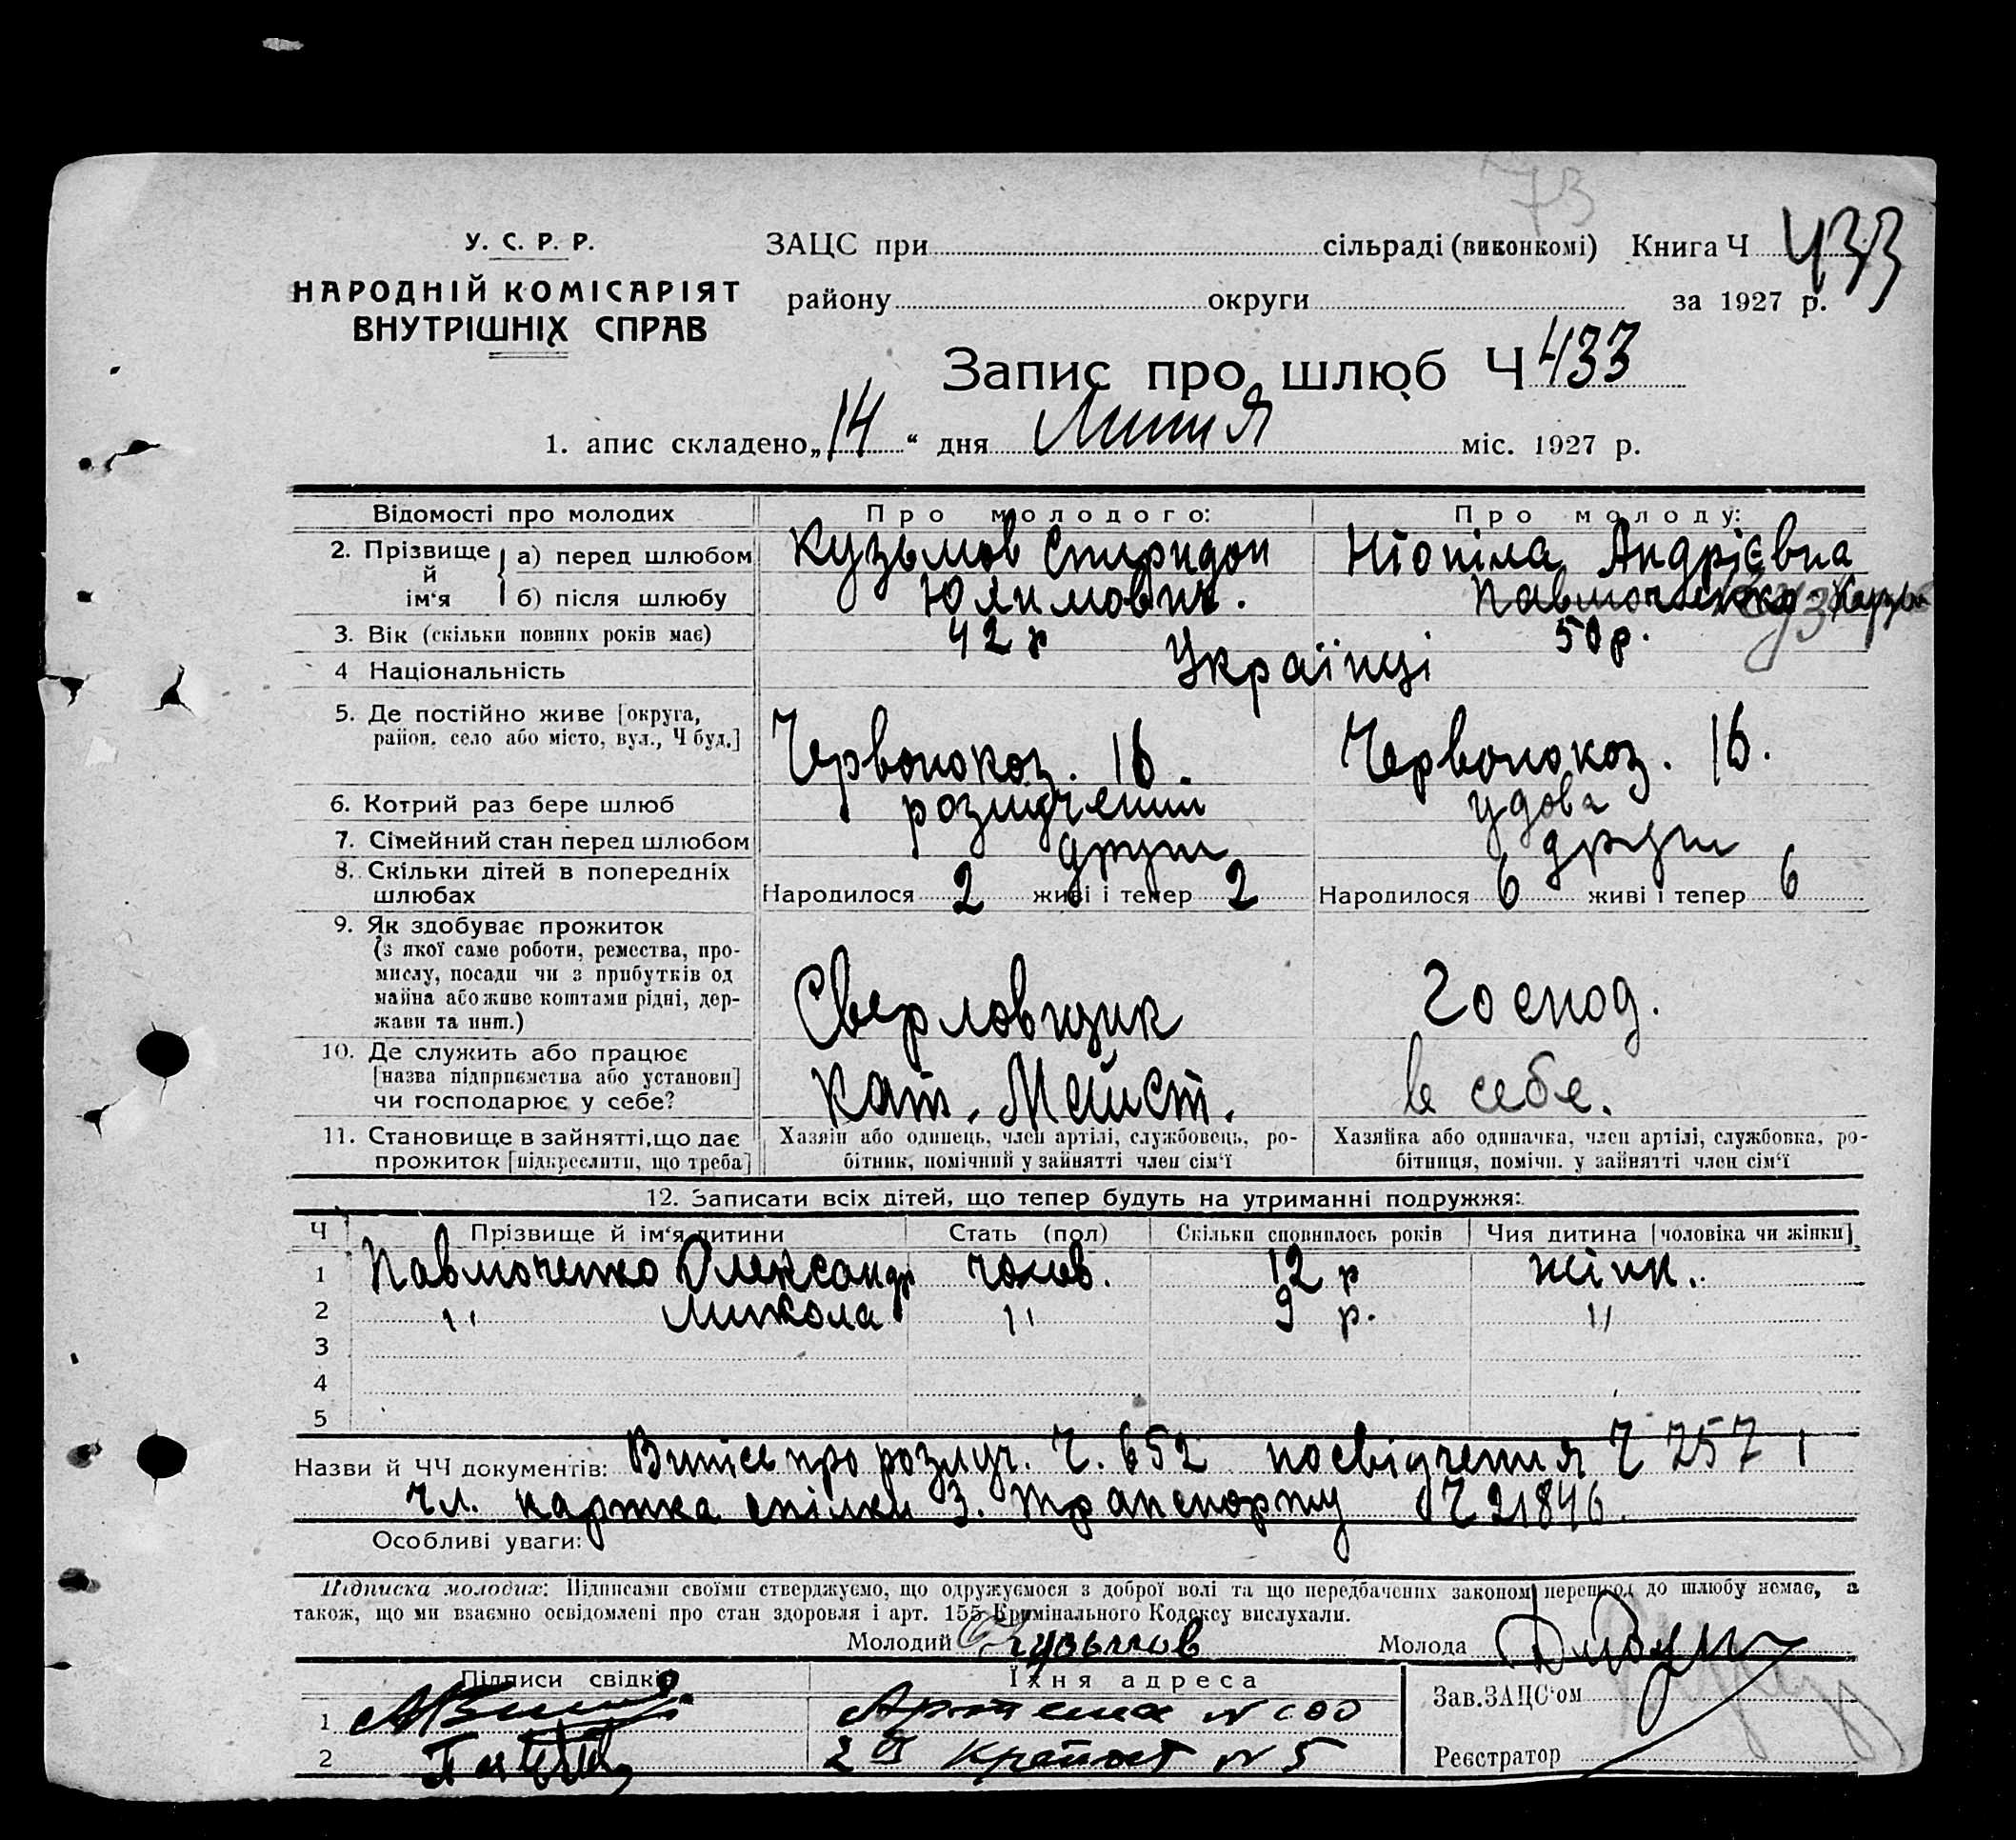 73
У. С. Р. Р.
НАРОДНІЙ КОМІСАРІЯТ
ВНУТРІШНІХ СПРАВ
ЗАЦС при сільраді (виконкомі) Книга Ч 433
району округи за 1927 р.
Запис про шлюб Ч 433
1. апис складено „14“ дня Липня міс. 1927 р.
Відомості про молодих Про молодого: Про молоду:
2. Прізвище й ім‘я а) перед шлюбом Кузьмов Спиридон Андрієвна
б) після шлюбу Павлюченко
3. Вік (скільки повних років має) 42 р 50 р.
4 Національність Українці
5. Де постійно живе [округа,
район, село або місто, вул., Ч буд.] Червонокоз. 16. Червонокоз. 16.
6. Котрий раз бере шлюб розлучений удова
7. Сімейний стан перед шлюбом други други
8. Скільки дітей в попередніх
шлюбах Народилося 2 живі і тепер 2 Народилося 6 живі і тепер 6
9. Як здобуває прожиток
(з якої саме роботи, ремества, про-
мислу, посади чи з прибутків од
майна або живе коштами рідні, дер-
жави та инш.) Сверловщик Господ.
10. Де служить або працює
[назва підприємства або установи]
чи господарює у себе? Кат. Мейст. в себе.
11. Становище в зайнятті, що дає
прожиток [підкреслити, що треба]
Хазяїн або одинець, член артілі, службовець, ро-
бітник, помічний у зайнятті член сім‘ї
Хазяйка або одиначка, член артілі, службовка, ро-
бітниця, помічн. у зайнятті член сім‘ї
12. Записати всіх дітей, що тепер будуть на утриманні подружжя:
Ч Прізвище й ім‘я дитини Стать (пол) Скільки сповнилось років Чия дитина [чоловіка чи жінки]
1 Павлюченко Олександр чолов. 12 р жінк.
2 " Микола " 9 р. "
3
4
5
Назви й ЧЧ документів: Випись про розлуч. Ч. 652 посвідчення Ч 257 і
чл. картка спілки З. Транспорту Ч 21846.
Особливі уваги:
Підписка молодих: Підписами своїми стверджуємо, що одружуємося з доброї волі та що передбачених законом перешкод до шлюбу немає, а
також, що ми взаємно освідомлені про стан здоровля і арт. 155 Кримінального Кодексу вислухали.
Молодий Кузьмов Молода
Підписи свідків Їхня адреса
1 Артема № 100
2 № 5
Зав. ЗАЦС‘ом
Реєстратор